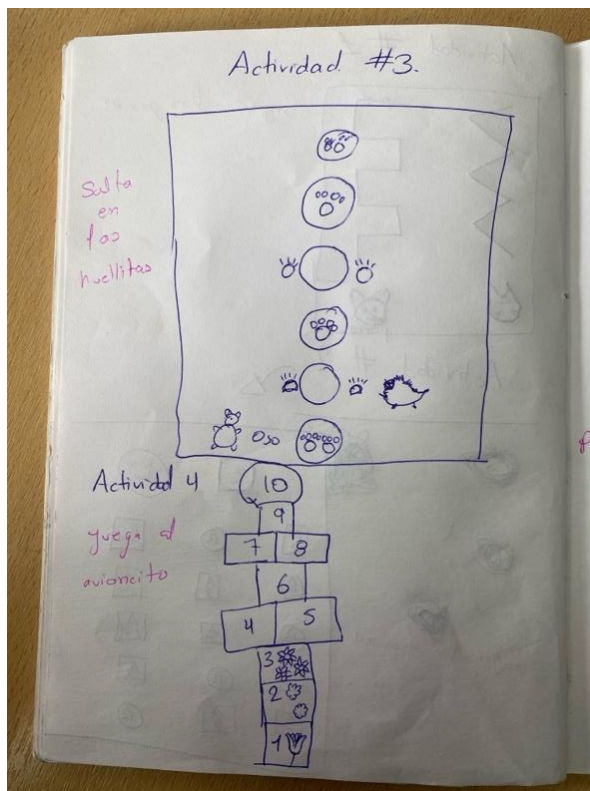 Actividad #3.
Salta
en
las
huellitas
Oso
Actividad 4
juega al
avioncito
10
9
7 8
6
4 5
3
2
1